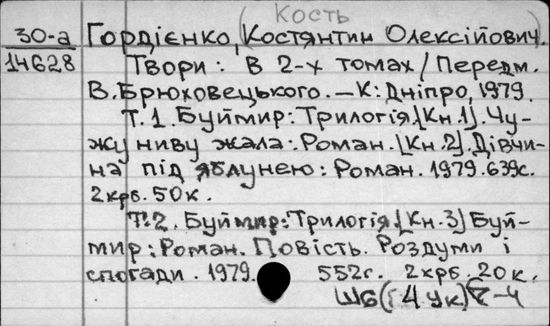 (Кость
30-а Гордієнко, Костянтин Олексійович).
14628 Твори: В 2-х томах / Передм.
В. Брюховецького. — К: Дніпро, 1979.
Т.1. Буймир: Трилогія. [Кн.1]. Чу-
жу ниву жала: Роман. [Кн.2]. Дівчи-
на під яблунею: Роман. 1979. 639с.
2крб. 50к.
Т.2. Буймир: Трилогія. [Кн.3] Буй-
мир: Роман. Повість. Роздуми і
спогади. 1979. 552с. 2крб. 20к.
Ш6(4Ук)